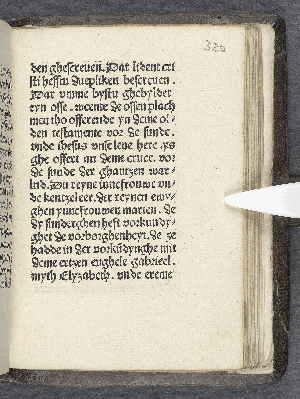 380
den ghescreuen. Dat lident cri
sti heffstu duepliken bescreuen.
Dar vmme bystu ghebyldet
eyn osse. wente de ossen plach
men tho offerende yn deme ol-
den testamente vor de sunde.
vnde ihesus vnse leue here ys
ghe offert an deme cruce. vor
de sunde der ghantzen wer-
lnd. Du reyne iuncfrouwe vn-
de kentzeleer. der reynen ewy-
ghen yuncfrouwen marien. de
dy sunderghen heft vorkundy-
ghet de vorborghenheyt. de ze
hadde in der vorkudynghe mit
deme ertzen enghele gabrieel.
myth Elyzabeth. vnde ereme